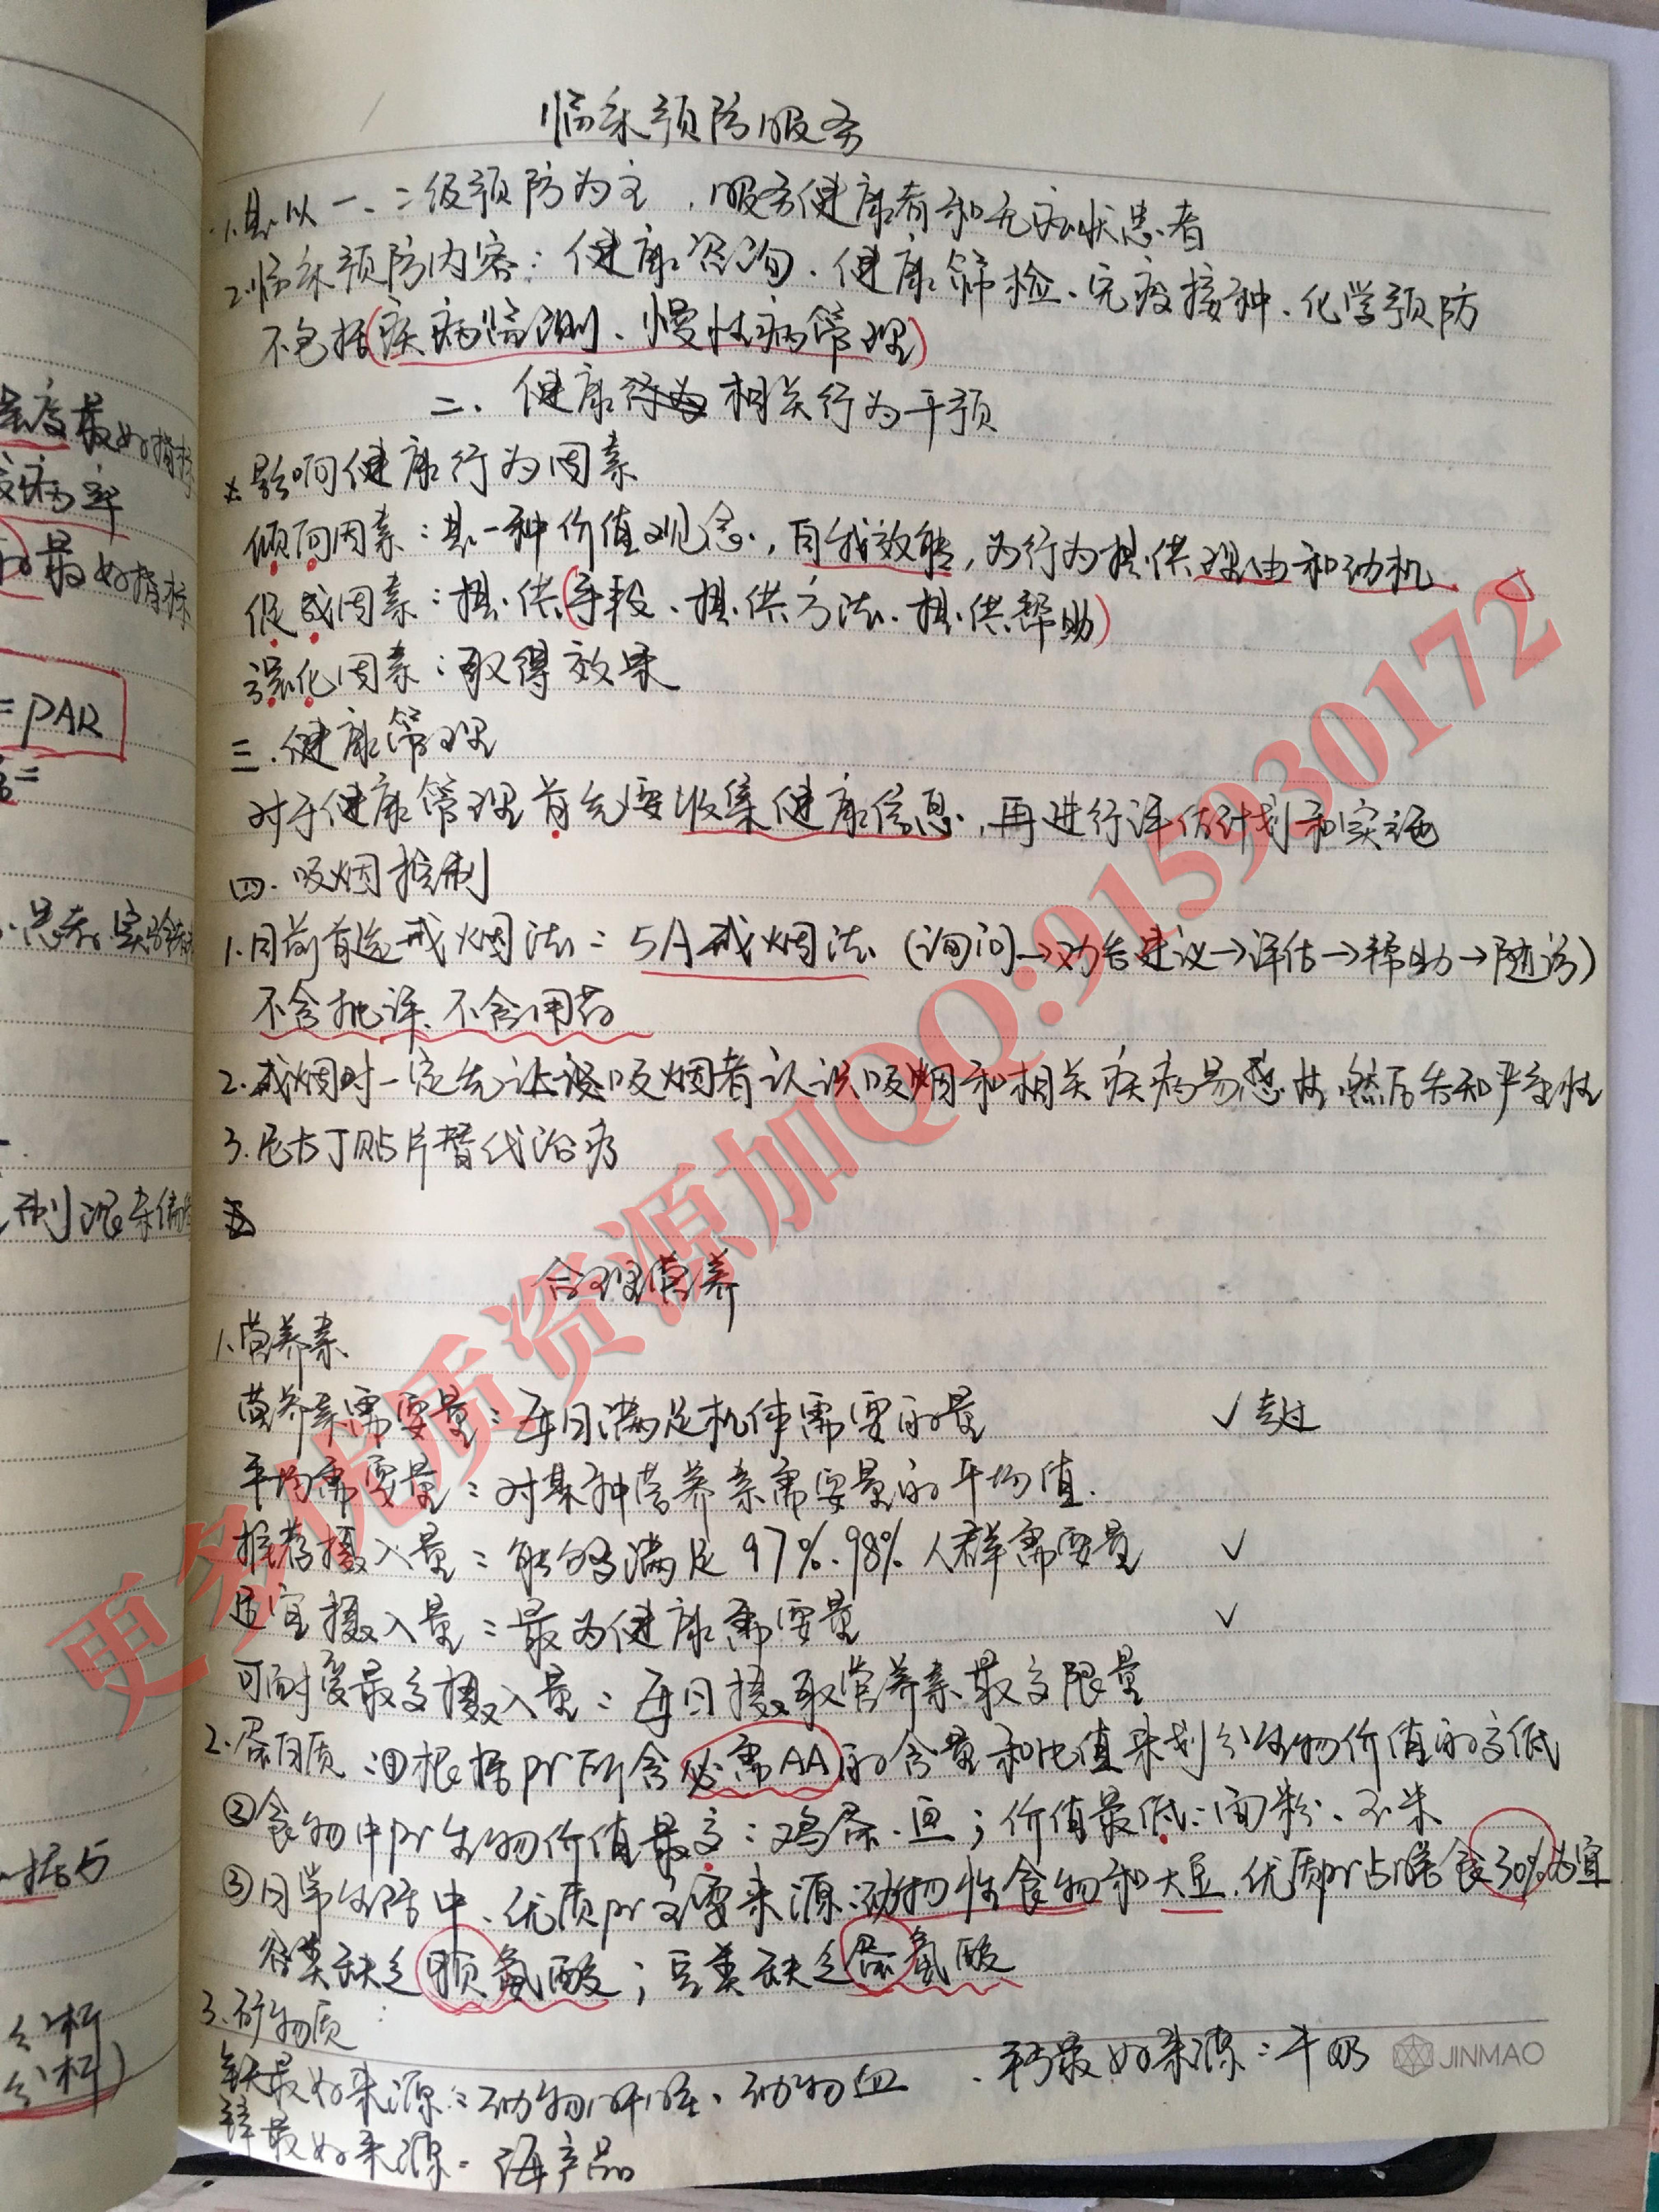 临床预防服务
1.是以一、二级预防为主，服务健康者和无症状患者
2.临床预防内容：健康咨询、健康筛检、免疫接种、化学预防
不包括(疾病监测、慢性病管理)
二、健康相关行为干预
影响健康行为因素
倾向因素：是一种价值观念，自我效能，为行为提供理由和动机
促成因素：提供(手段、提供方法、提供帮助)
强化因素：取得效果
三.健康管理
对于健康管理首先要收集健康信息，再进行评估计划和实施
四.吸烟控制
1.目前首选戒烟法：5A戒烟法（询问→劝告建议→评估→帮助→随访）
不含批评、不含用药
2.戒烟时一定先让该吸烟者认识吸烟和相关疾病易感性，然后告知严重性
3.尼古丁贴片替代治疗
合理营养
1.营养素
营养素需要量：每日满足机体需要的量 ✓
平均需要量：对某种营养素需要量的平均值.
推荐摄入量：能够满足97%.98%人群需要量 ✓
适宜摄入量：最为健康需要量 ✓
可耐受最高摄入量：每日摄取营养素最高限量
2.蛋白质：①根据pr所含必需AA的含量和比值来划分生物价值的高低
②食物中pr生物价值最高：鸡蛋.鱼；价值最低：面粉、玉米
③日常生活中、优质pr主要来源:动物性食物和大豆，优质pr占膳食30%为宜
谷类缺乏赖氨酸；豆类缺乏蛋氨酸
3.矿物质：
铁最好来源：动物肝脏、动物血、钙最好来源：牛奶
锌最好来源：海产品
JINMAO
更多优质资源加QQ:915930172
全度最好指标
发病率
的最好指标
=PAR